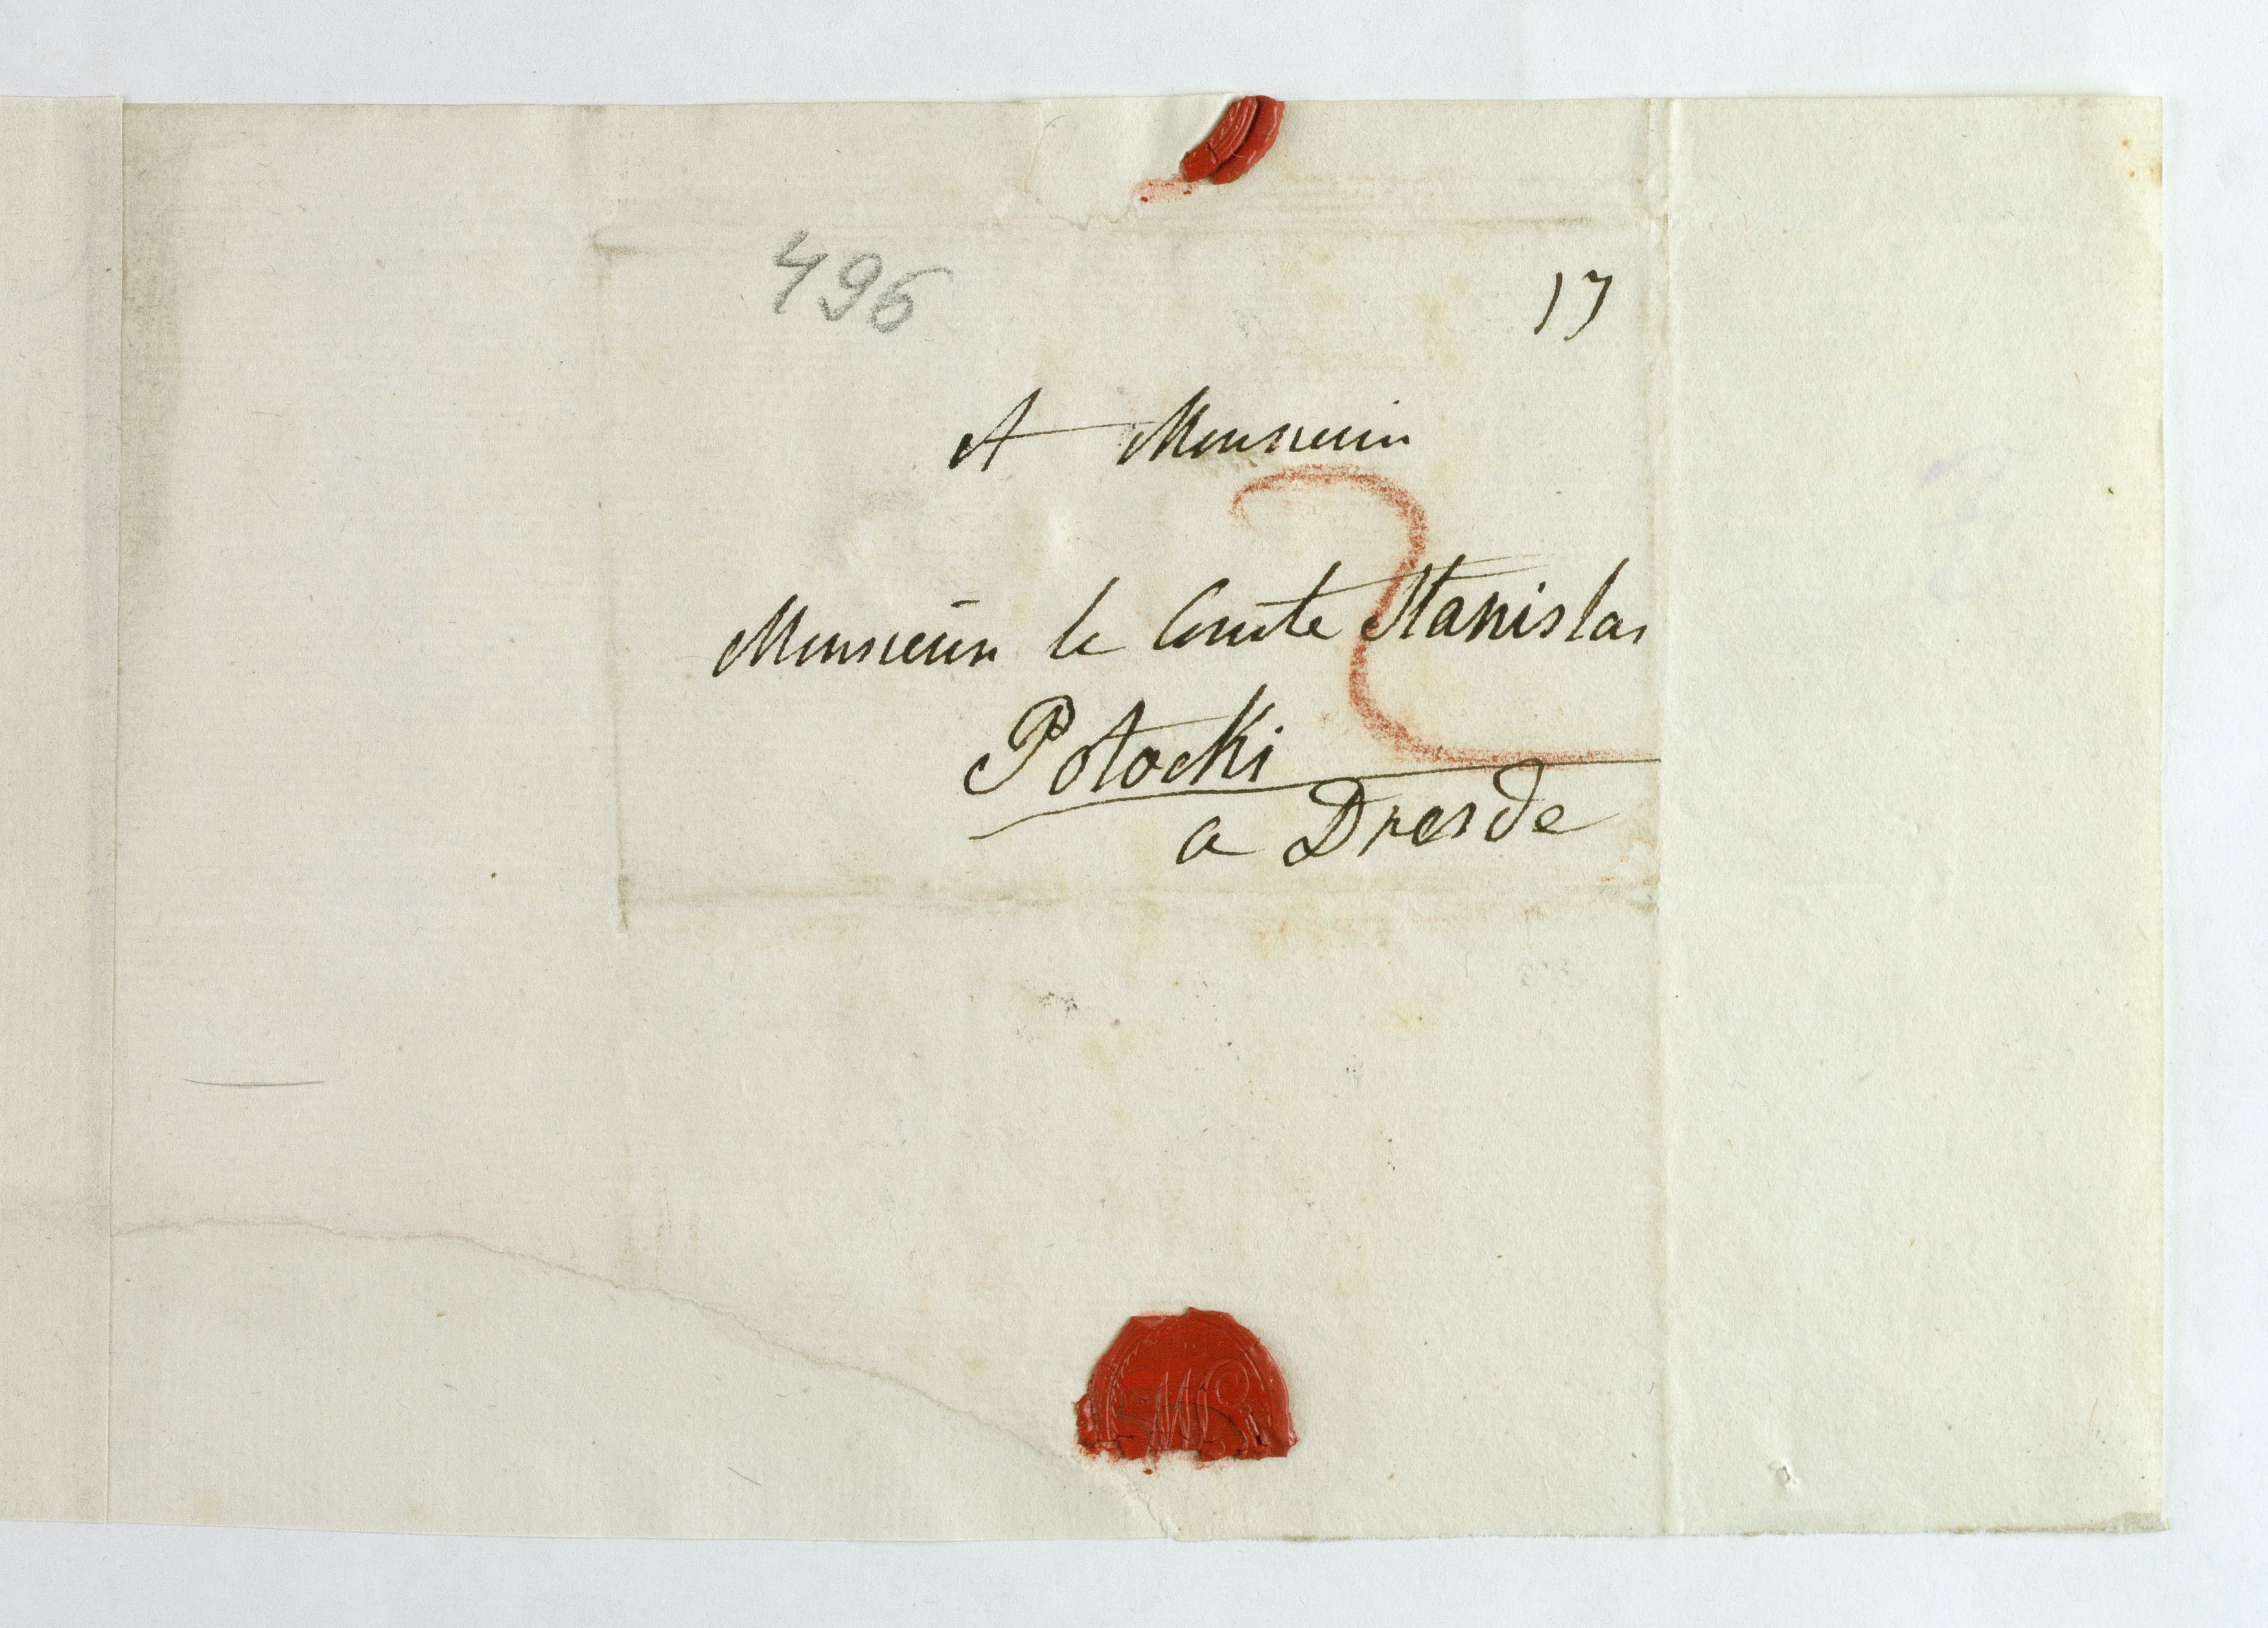 496
17
A Monsieur
Monsieur le Comte Stanislas
Potocki
a Dresde